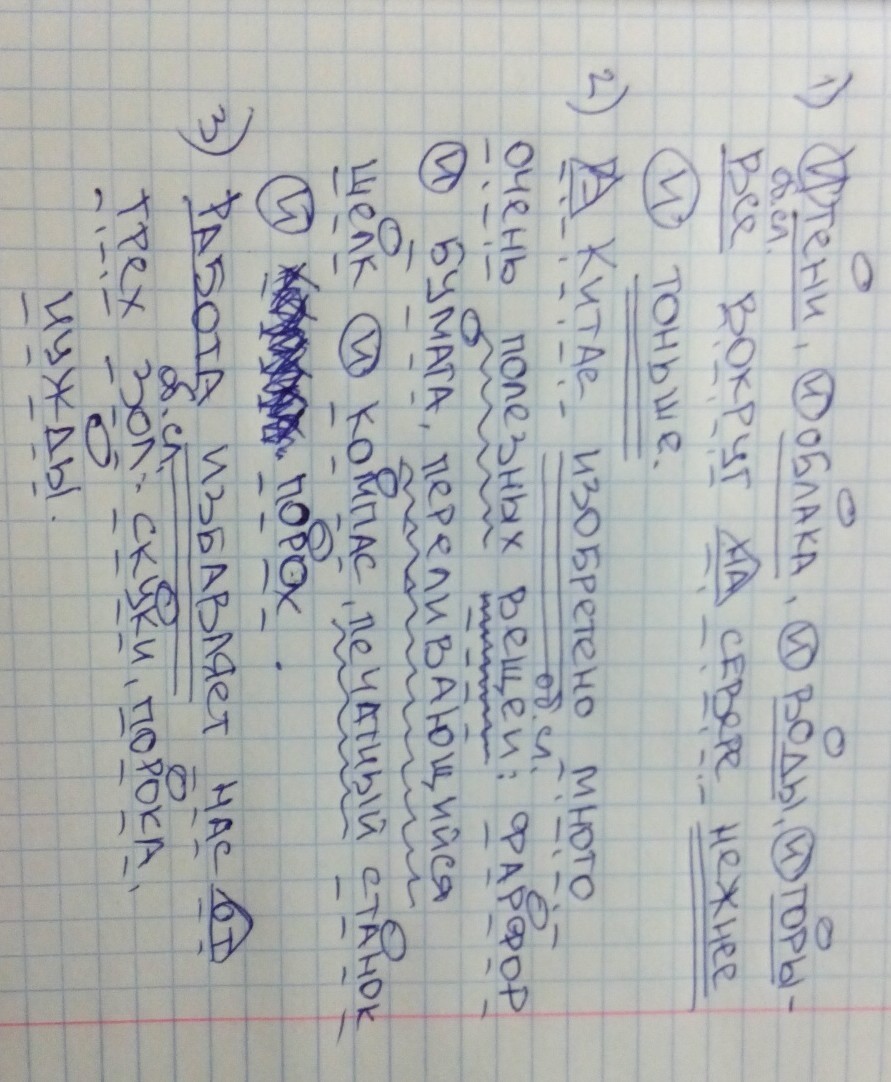 1) И тени, и облака, и воды, и горы-
об.сл.
все вокруг на севере нежнее
и тоньше.
2) В Китае изобретено много
об.сл.
очень полезных вещей: фарфор
и бумага, переливающийся
шелк и компас, печатный станок
и порох.
3) Работа избавляет нас от
об.сл.
трех зол: скуки, порока,
нужды.